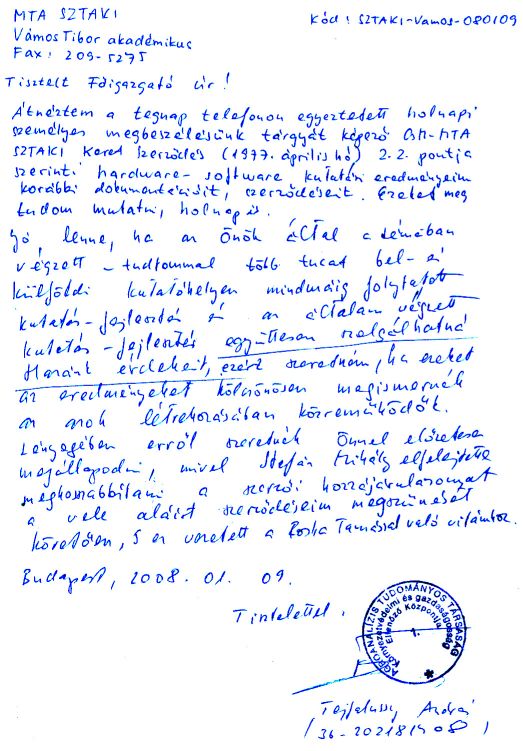 MTA SZTAKI
Kód: SZTAKI-Vamos-080109
Vámos Tibor akadémikus
Fax: 209-5275
Tisztelt Főigazgató Úr!
Átnéztem a tegnap telefonon egyeztetett holnapi
személyes megbeszélésünk tárgyát képező OM-MTA
SZTAKI Keret Szerződés (1977. április hó) 2.2. pontja
szerinti hardware-software kutatási eredményeim
korábbi dokumentációit, szerződéseit. Ezeket meg
tudom mutatni, holnap is.
Jó, lenne, ha az Önök által a témában
végzett - tudtommal több tucat bel- és
külföldi kutatóhelyen mindmáig folytatott
kutatás-fejlesztés és az általam végzett
kutatás-fejlesztés együttesen szolgálhatná
Hazánk érdekeit, ezért szeretném, ha ezeket
az eredményeket kölcsönösen megismernék
az azok létrehozásában közreműködők.
Lényegében erről szeretnék Önnel előzetesen
megállapodni, mivel Stefán Mihály elfelejtette
meghosszabbítani a szerzői hozzájárulásomat
a vele aláírt szerződéseim megszűnését
követően, s ez vezetett a Roska Tamással való vitámhoz.
Budapest, 2008. 01. 09.
Tisztelettel:
AGROANALÍZIS TUDOMÁNYOS TÁRSASÁG
Környezetvédelmi és gazdaságosság
Ellenőrző Központja
1.
Tejfalussy András
(36-202181408)